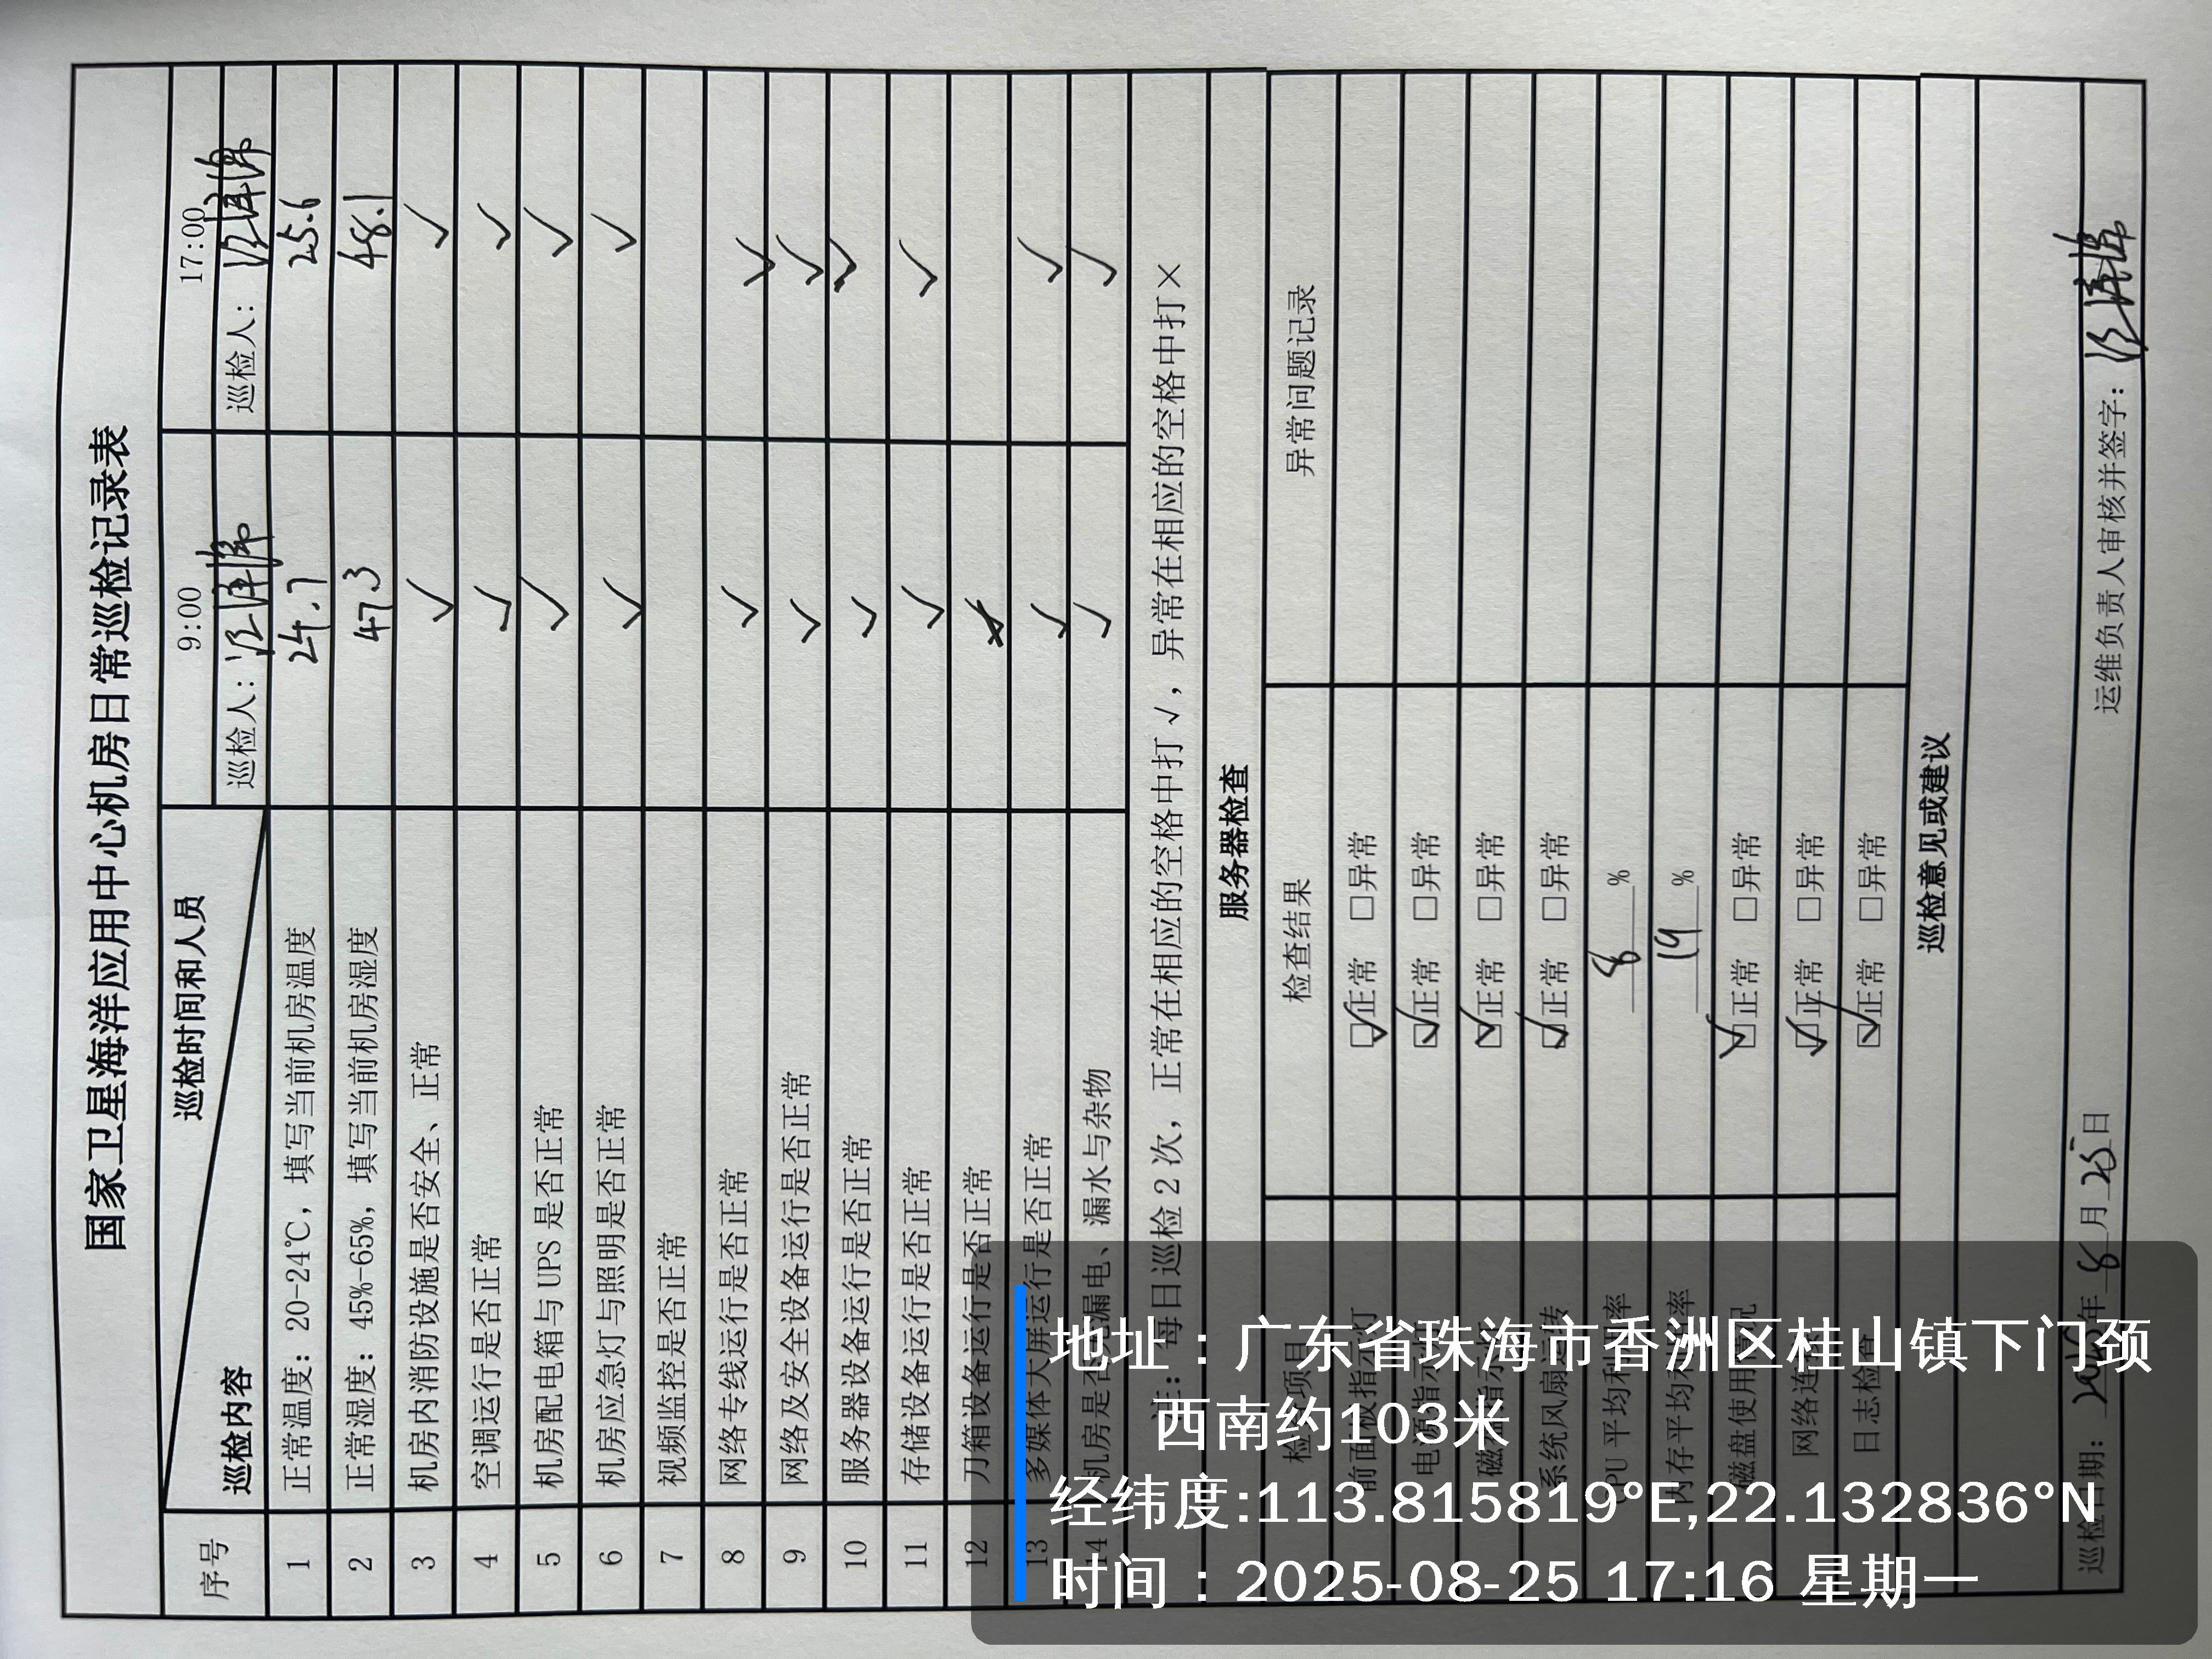 国家卫星海洋应用中心机房日常巡检记录表
序号 巡检内容 巡检时间和人员 9:00 17:00
巡检人： 巡检人：
1 正常温度：20-24℃，填写当前机房温度 24.7 25.6
2 正常湿度：45%-65%，填写当前机房湿度 47.3 48.1
3 机房内消防设施是否安全、正常 ✓ ✓
4 空调运行是否正常 ✓ ✓
5 机房配电箱与UPS是否正常 ✓ ✓
6 机房应急灯与照明是否正常 ✓ ✓
7 视频监控是否正常
8 网络专线运行是否正常 ✓ ✓
9 网络及安全设备运行是否正常 ✓ ✓
10 服务器设备运行是否正常 ✓ ✓
11 存储设备运行是否正常 ✓ ✓
12 刀箱设备运行是否正常
13 多媒体大屏运行是否正常 ✓ ✓
14 机房是否漏电、漏水与杂物 ✓ ✓
注：每日巡检2次，正常在相应的空格中打√，异常在相应的空格中打×
服务器检查
检查项目 检查结果 异常问题记录
前面板指示灯 ☑正常 □异常
电源指示灯 ☑正常 □异常
磁盘指示灯 ☑正常 □异常
系统风扇运转 ☑正常 □异常
CPU平均利用率 8 %
内存平均利用率 19 %
磁盘使用情况 ☑正常 □异常
网络连接 ☑正常 □异常
日志检查 ☑正常 □异常
巡检意见或建议
巡检日期：2025年8月25日 运维负责人审核并签字：
地址：广东省珠海市香洲区桂山镇下门颈
西南约103米
经纬度:113.815819°E,22.132836°N
时间：2025-08-25 17:16 星期一